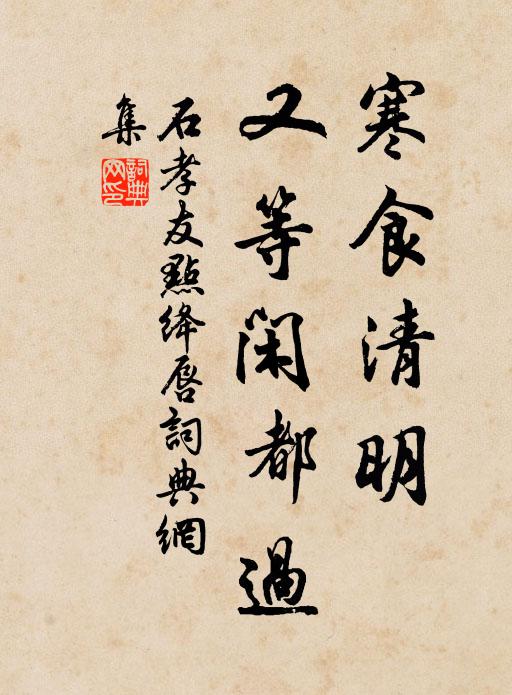 寒食清明
又等閑都過
石孝友點絳唇詞典網
集
詞典網印